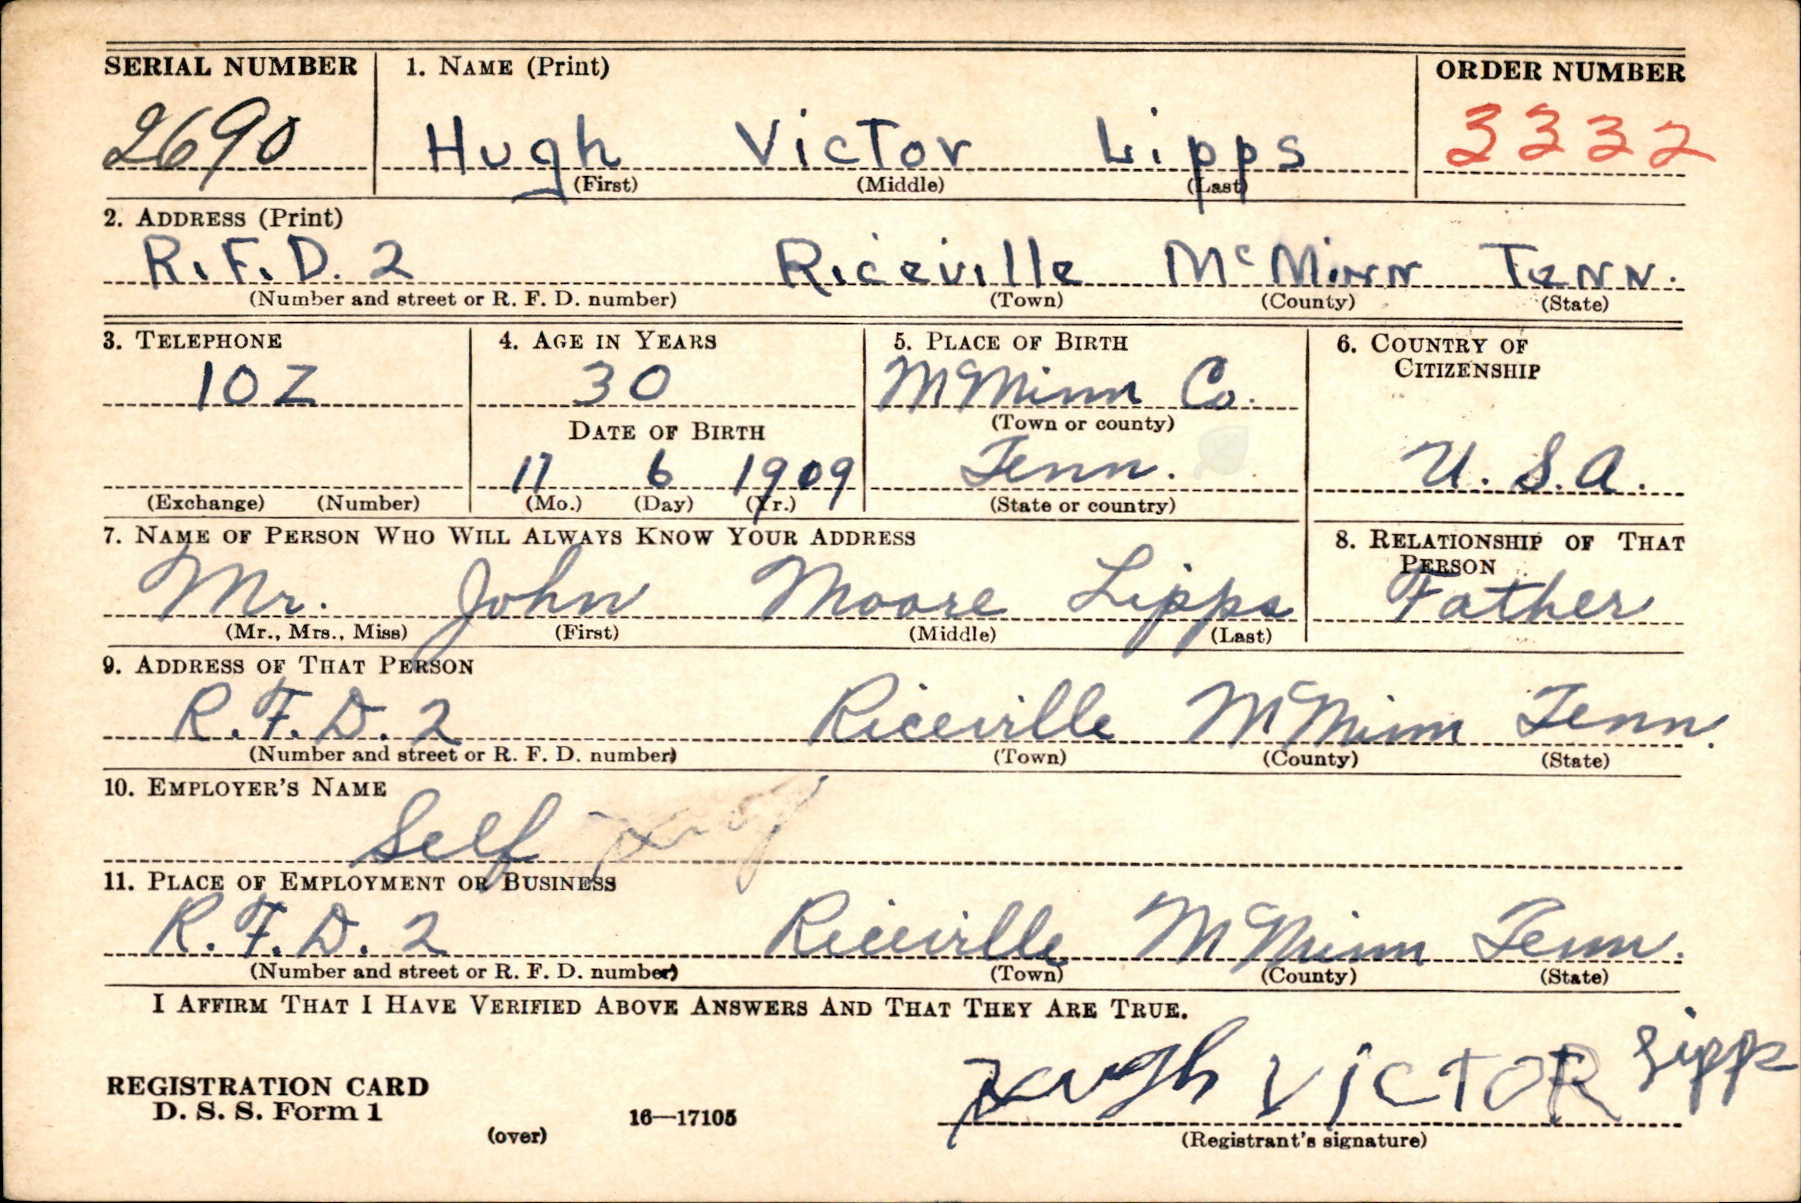 SERIAL NUMBER 1. NAME (Print) ORDER NUMBER
2690 Hugh Victor Lipps 3332
(First) (Middle) (Last)
2. ADDRESS (Print)
R.F.D. 2 Riceville McMinn Tenn.
(Number and street or R. F. D. number) (Town) (County) (State)
3. TELEPHONE 4. AGE IN YEARS 5. PLACE OF BIRTH 6. COUNTRY OF
CITIZENSHIP
10Z 30 McMinn Co.
(Town or county)
DATE OF BIRTH
11 6 1909 Tenn. U.S.A.
(Exchange) (Number) (Mo.) (Day) (Yr.) (State or country)
7. NAME OF PERSON WHO WILL ALWAYS KNOW YOUR ADDRESS 8. RELATIONSHIP OF THAT
PERSON
Mr. John Moore Lipps Father
(Mr., Mrs., Miss) (First) (Middle) (Last)
9. ADDRESS OF THAT PERSON
R.F.D. 2 Riceville McMinn Tenn.
(Number and street or R. F. D. number) (Town) (County) (State)
10. EMPLOYER'S NAME
Self
11. PLACE OF EMPLOYMENT OR BUSINESS
R.F.D. 2 Riceville McMinn Tenn.
(Number and street or R. F. D. number) (Town) (County) (State)
I AFFIRM THAT I HAVE VERIFIED ABOVE ANSWERS AND THAT THEY ARE TRUE.
Hugh VICTOR Lipps
REGISTRATION CARD
D. S. S. Form 1 16—17105
(over) (Registrant's signature)